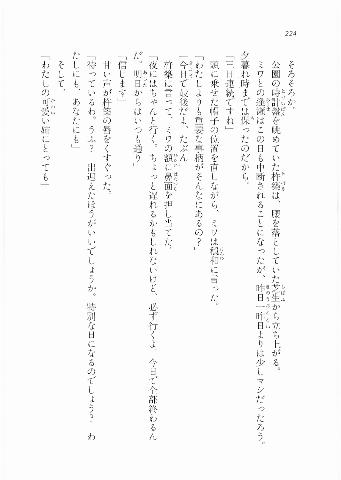 224
そろそろか。
公園の時計盤を眺めていた杵築は、腰を落としていた芝生から立ち上がる。
ミワとの逢瀬はこの日も中断されることになったが、昨日一昨日よりは少しマシだったろう。
夕暮れ時までは保ったのだから。
「三日連続ですね」
頭に乗せた帽子の位置を直しながら、ミワは緩和に言った。
「わたしよりも重要な事柄がそんなにあるの？」
「今日で最後だよ、たぶん」
杵築は言って、ミワの額に鼻面を押し当てた。
「夜にはちゃんと行く。ちょっと遅れるかもしれないけど、必ず行くよ。今日で全部終わるん
だ。明日からはいつも通り」
「信じます」
甘い声が杵築の唇をくすぐった。
「待っているわ。うふ？　出迎えたほうがいいでしょうか。特別な日になるのでしょう？　わ
たしにも、あなたにも」
そして、
「わたしの可愛い姉にとっても」